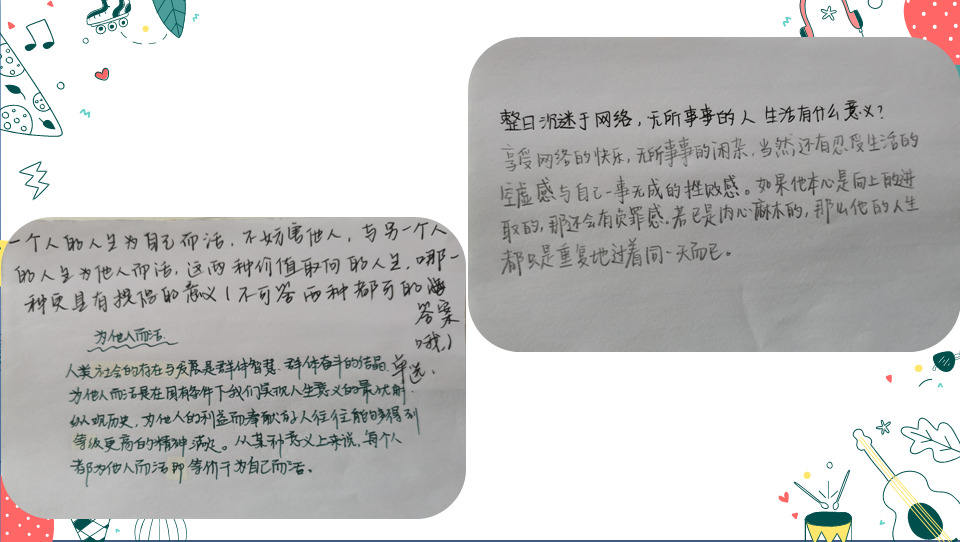 整日沉迷于网络，无所事事的人生活有什么意义？
享受网络的快乐，无所事事的闲杂，当然还有忍受生活的
空虚感与自己一事无成的挫败感。如果他本心是向上的进
取的，那还会有负罪感。若已是内心麻木的，那么他的人生
都只是重复地过着同一天而已。
一个人的人生为自己而活，不妨害他人，与另一个人
的人生为他人而活，这两种价值取向的人生，哪一
种更具有提倡的意义（不可答两种都可的
答案
哦）
单选.
为他人而活.
人类社会的存在与发展是群体智慧、群体奋斗的结晶.
为他人而活是在固有条件下我们实现人生意义的最优解.
纵观历史，为他人的利益而奉献的人往往能够得到
等级更高的精神满足。从某种意义上来说，每个人
都为他人而活即等价于为自己而活。